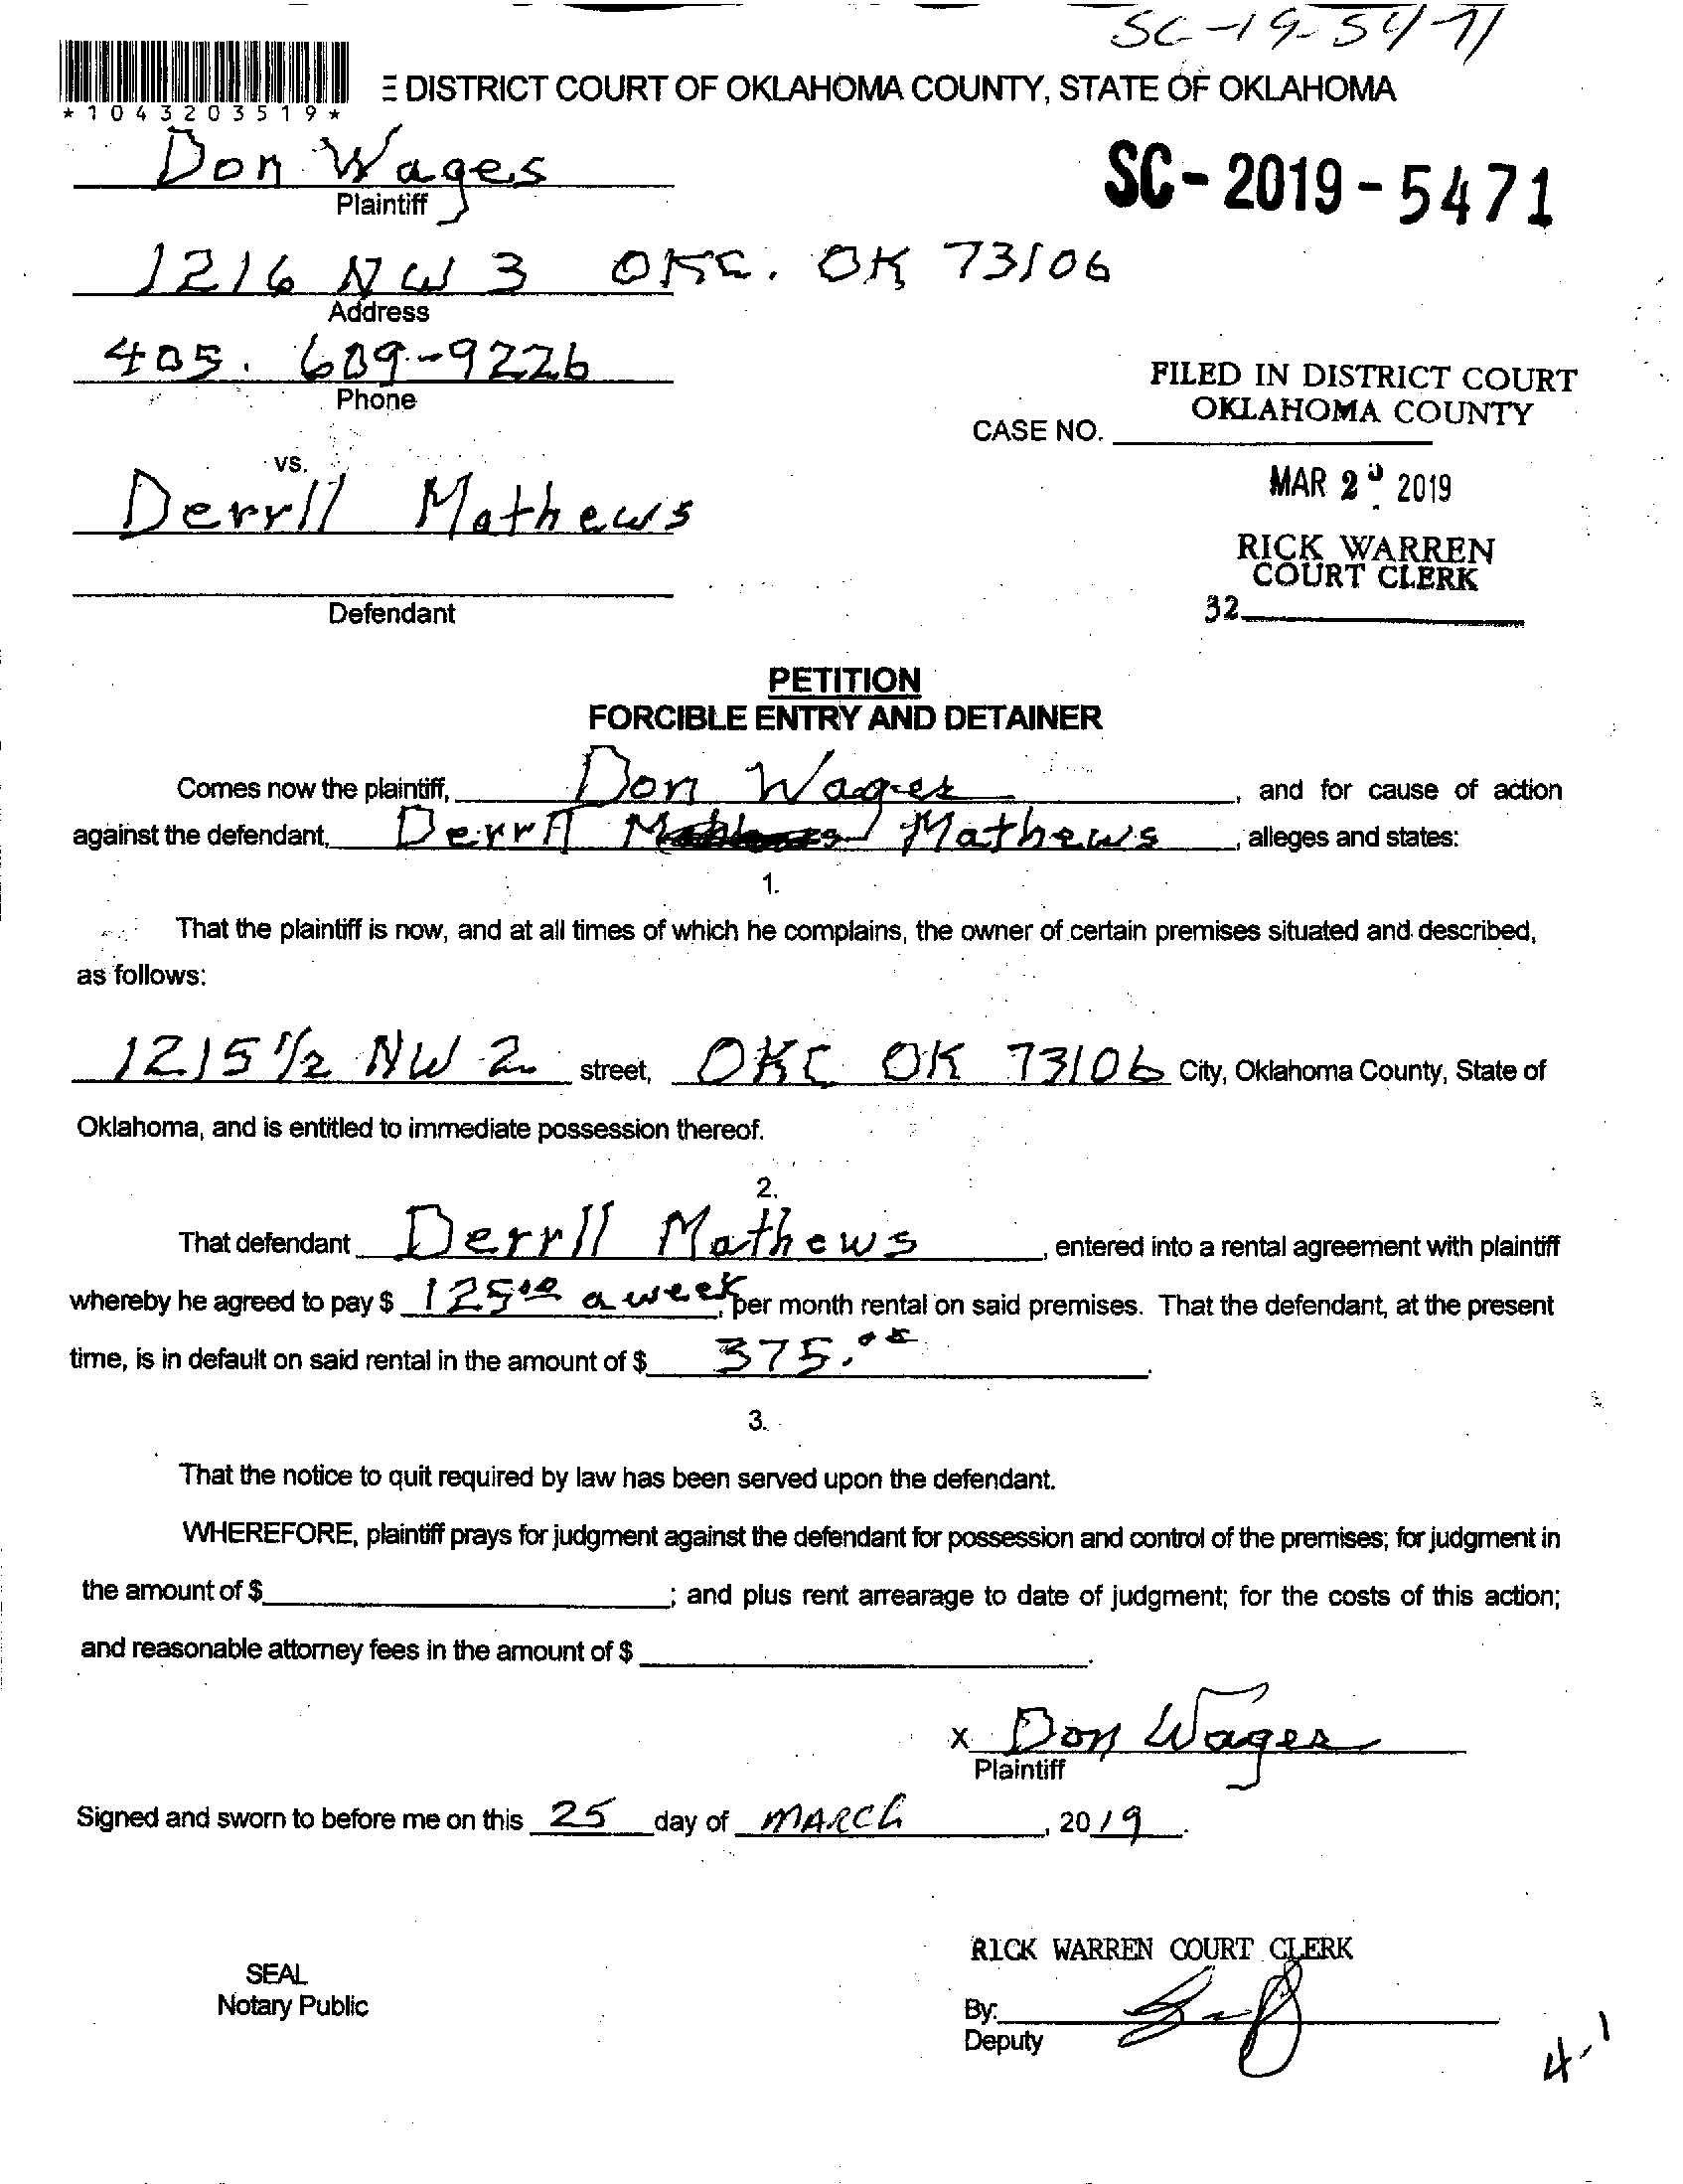 SC-19-5471
DISTRICT COURT OF OKLAHOMA COUNTY, STATE OF OKLAHOMA
*1043203519*
Don Wages
Plaintiff
SC-2019-5471
1216 NW 3 OKC. OK 73106
Address
405. 609-9226
Phone
FILED IN DISTRICT COURT
OKLAHOMA COUNTY
CASE NO.
vs.
MAR 2 2019
Derrll Mathews
RICK WARREN
COURT CLERK
32
Defendant
PETITION
FORCIBLE ENTRY AND DETAINER
Comes now the plaintiff, Don Wages, and for cause of action
against the defendant, Derrll Mathews, alleges and states:
1.
That the plaintiff is now, and at all times of which he complains, the owner of certain premises situated and described,
as follows:
1215 1/2 NW 2 street, OKC OK 73106 City, Oklahoma County, State of
Oklahoma, and is entitled to immediate possession thereof.
2.
That defendant Derrll Mathews, entered into a rental agreement with plaintiff
whereby he agreed to pay $ 125.00 a week, per month rental on said premises. That the defendant, at the present
time, is in default on said rental in the amount of $ 375.00.
3.
That the notice to quit required by law has been served upon the defendant.
WHEREFORE, plaintiff prays for judgment against the defendant for possession and control of the premises; for judgment in
the amount of $ ; and plus rent arrearage to date of judgment; for the costs of this action;
and reasonable attorney fees in the amount of $ .
x Don Wages
Plaintiff
Signed and sworn to before me on this 25 day of MARCh, 2019.
RICK WARREN COURT CLERK
SEAL
Notary Public
By:
Deputy
4-1